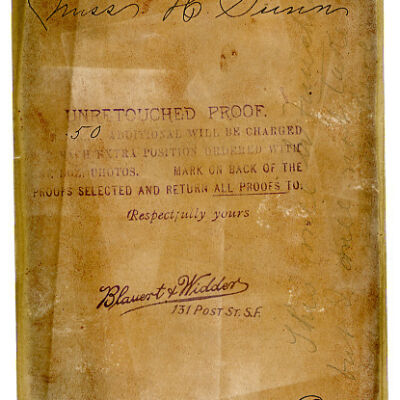 Miss H
UNRETOUCHED PROOF.
50 ADDITIONAL WILL BE CHARGED
EACH EXTRA POSITION ORDERED WITH
DOZ. PHOTOS. MARK ON BACK OF THE
PROOFS SELECTED AND RETURN ALL PROOFS TO:
Respectfully yours
Blauert & Widder
131 POST ST. S.F.